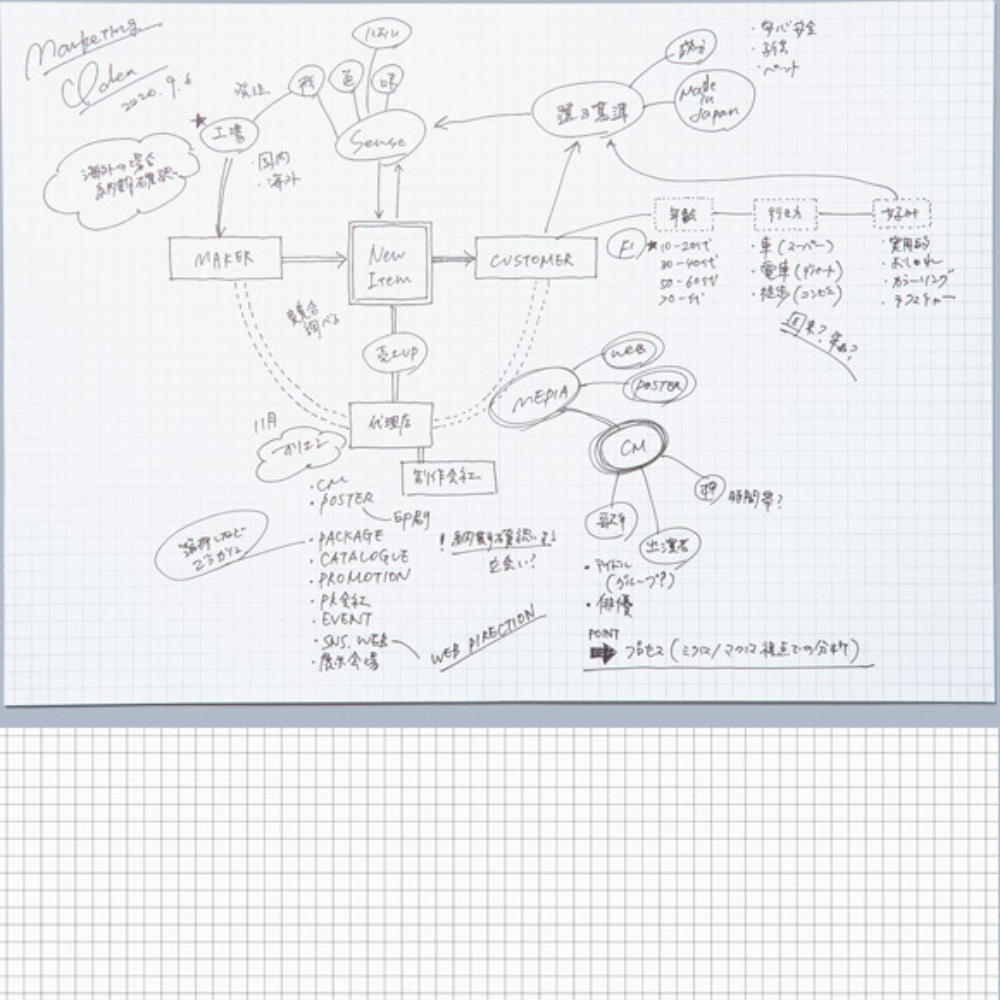 Marketing
2020.9.6
発注
形
色
Sense
工場
・国内
・海外
海外の場合
納期確認
選ぶ基準
成分
Made
in
Japan
・安心安全
・子供
・ペット
MAKER
New
Item
CUSTOMER
年齢
行き方
好み
F1
★10-20代
30-40代
50-60代
70-代
・車(スーパー)
・電車(デパート)
・徒歩(コンビニ)
・実用的
・おしゃれ
・カラーリング
・テクスチャー
競合
調べる
売上UP
代理店
制作会社
11月
オリエン
MEDIA
WEB
POSTER
CM
歌手
出演者
時間帯?
・アイドル
(グループ?)
・俳優
・CM
・POSTER
印刷
・PACKAGE
・CATALOGUE
・PROMOTION
・PR会社
・EVENT
・SNS. WEB
・展示会場
WEB DIRECTION
!納期確認する!
立会い?
POINT
プロセス(ミクロ/マクロ視点での分析)